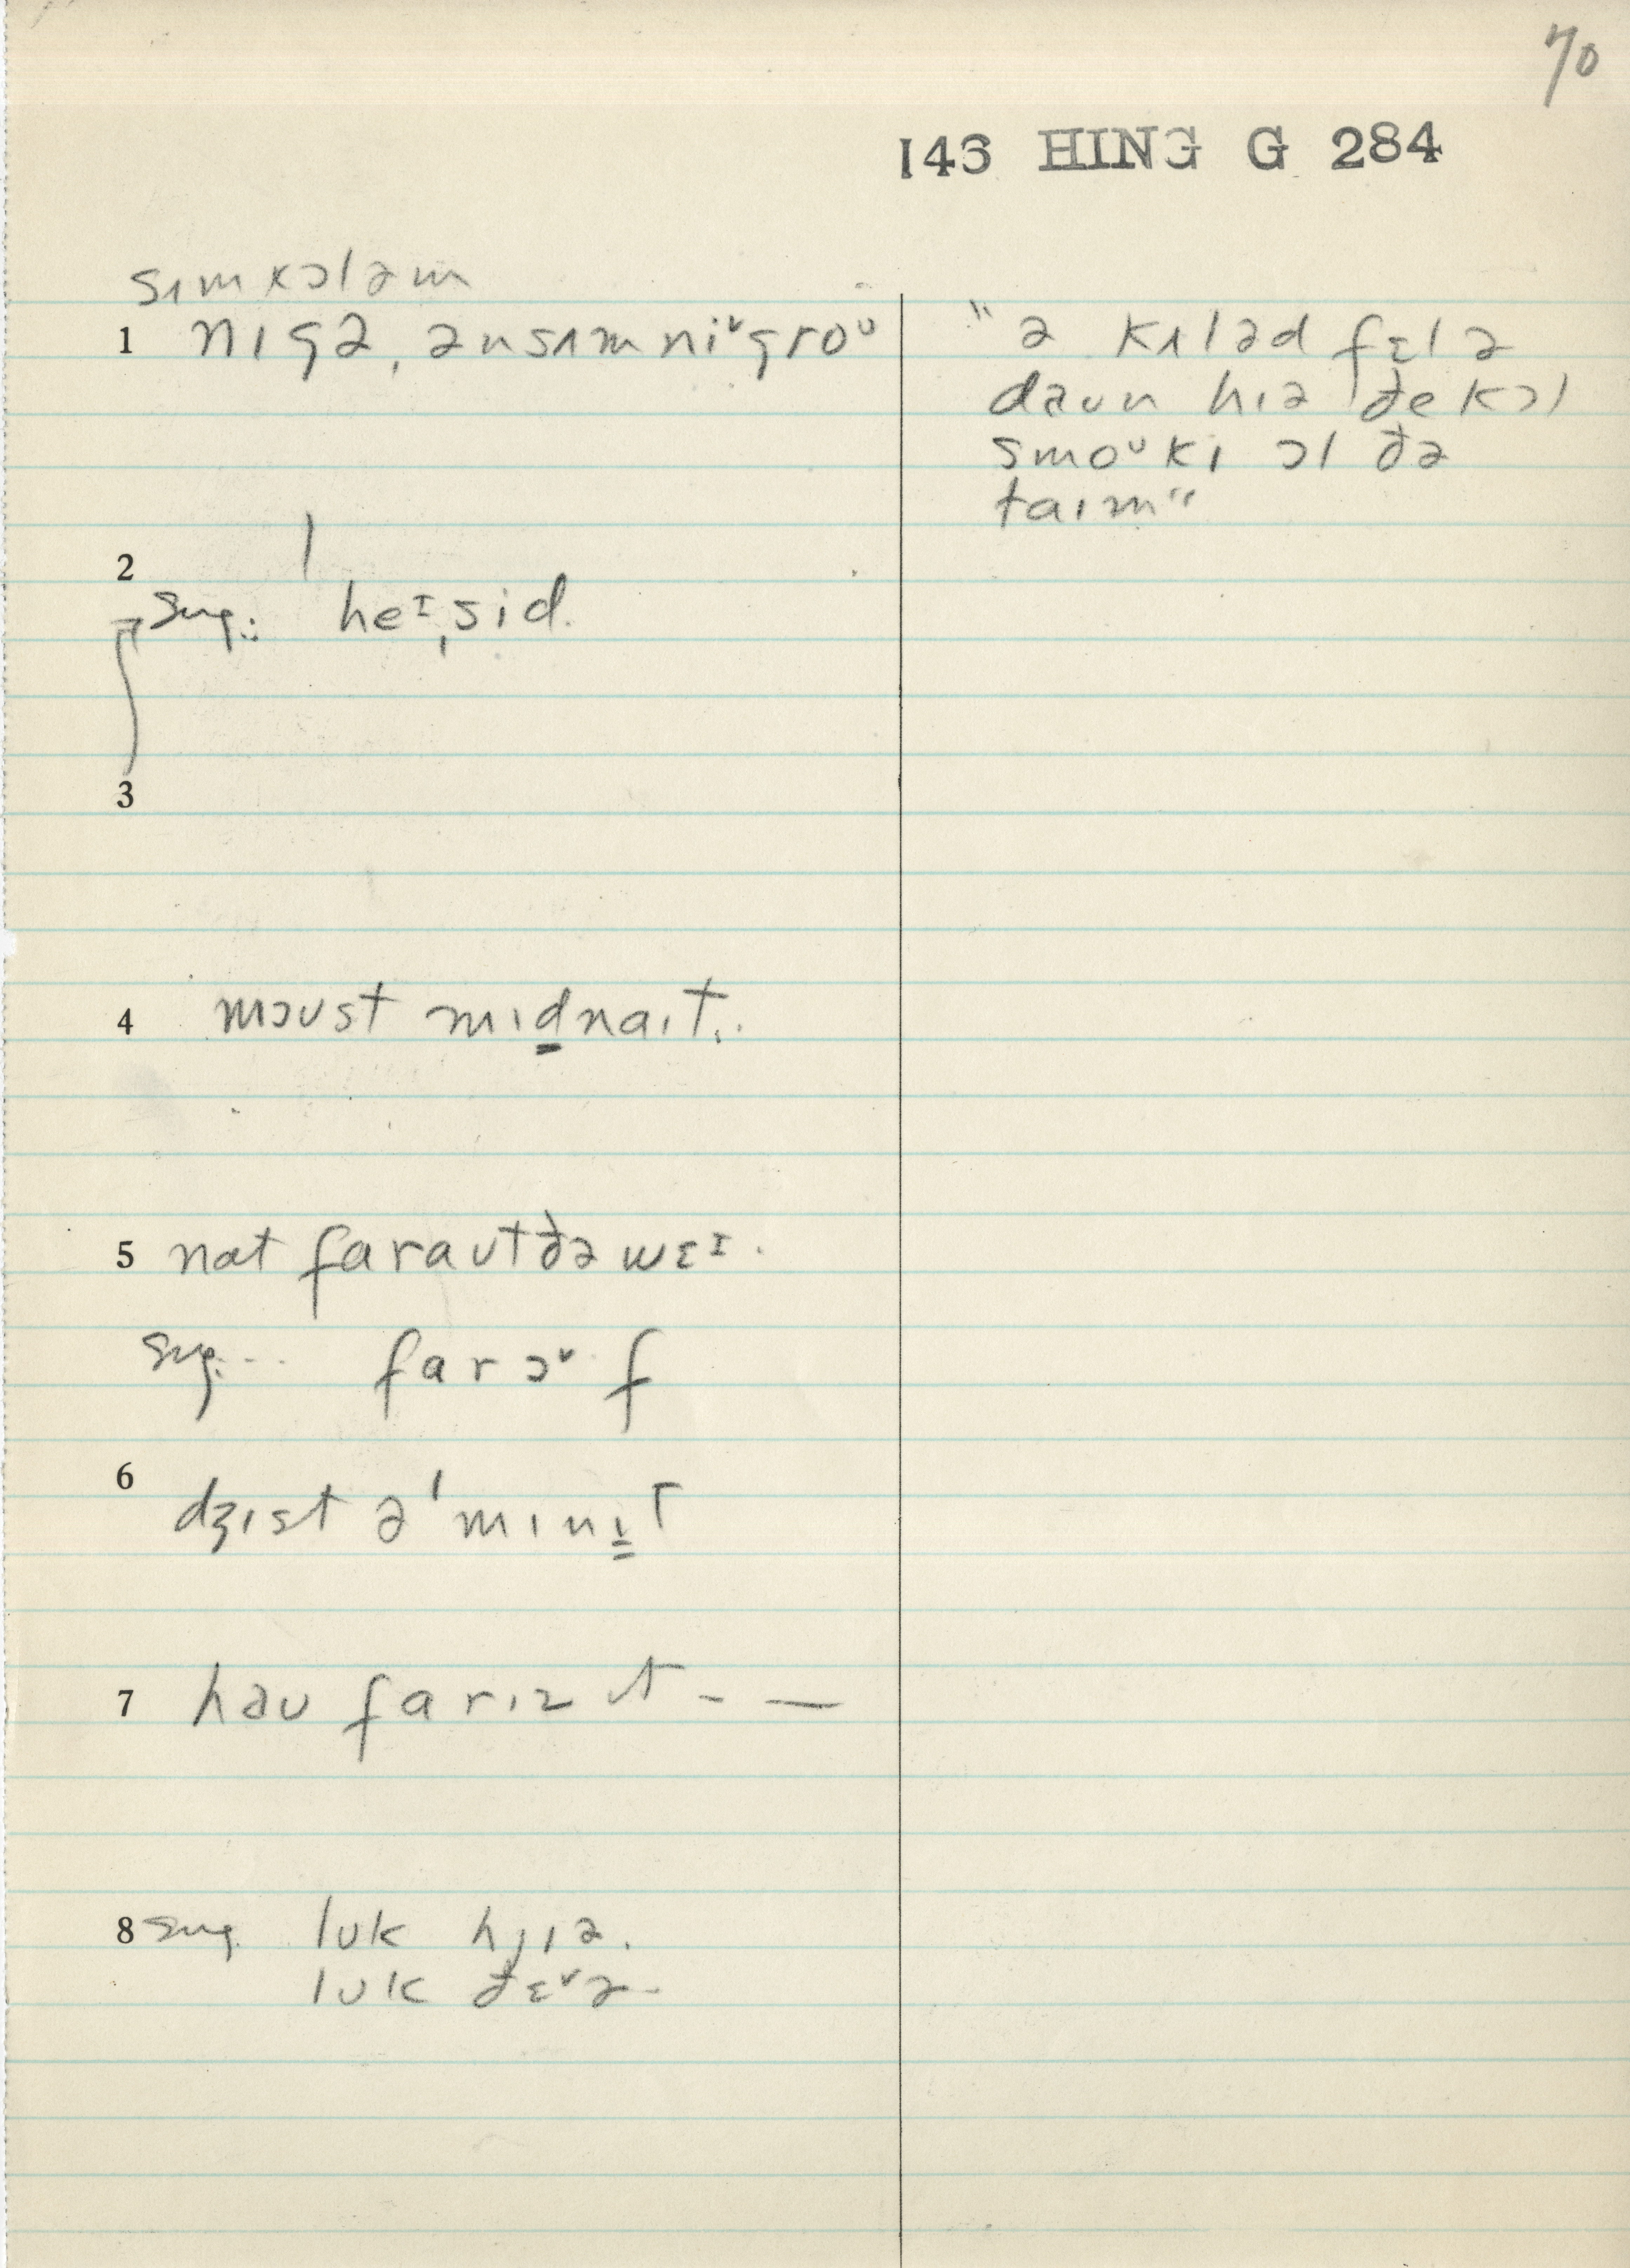 70
143 HING G 284
sɪmkɔləm
1 nɪgə, ənsʌmniᵛgroᵘ
"ə kʌləd fɛlə
daun hɪə ðe kɔl
smoᵘkɪ ɔl ðə
taɪm"
2
sug.: heᶦ,sid.
3
4 mɔust mɪdnaɪt..
5 nat faraut ðə wɛᶦ.
sug... farɔᵛf
6 dʒɪst ə'mɪnɪt
7 həu farɪz ɪt - —
8 sug. luk hjɪə.
luk ðɛᵛə.